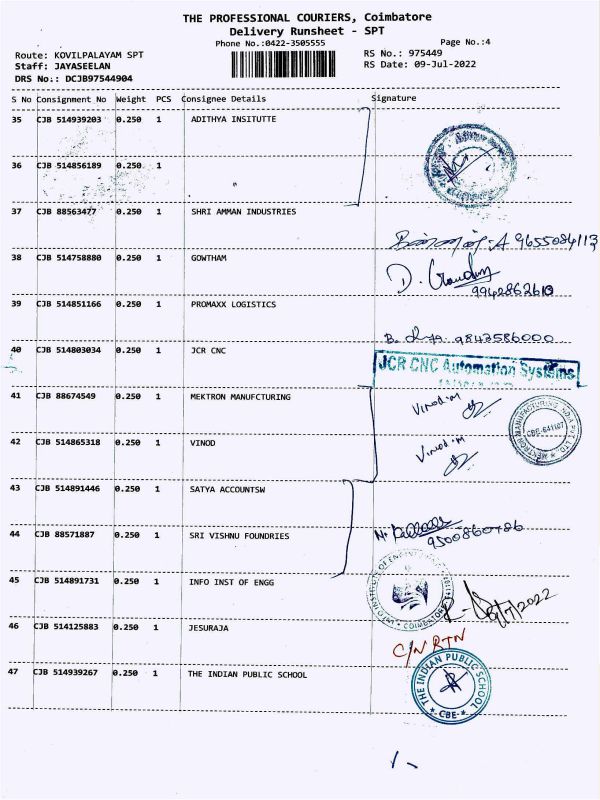 THE PROFESSIONAL COURIERS, Coimbatore
Delivery Runsheet - SPT
Phone No.:0422-3505555 Page No.:4
Route: KOVILPALAYAM SPT RS No.: 975449
Staff: JAYASEELAN RS Date: 09-Jul-2022
DRS No.: DCJB97544904
S No Consignment No Weight PCS Consignee Details Signature
35 CJB 514939203 0.250 1 ADITHYA INSITUTTE
36 CJB 514856189 0.250 1
37 CJB 88563477 0.250 1 SHRI AMMAN INDUSTRIES
9655084113
38 CJB 514758880 0.250 1 GOWTHAM
9942862610
39 CJB 514851166 0.250 1 PROMAXX LOGISTICS
9842586000
40 CJB 514803034 0.250 1 JCR CNC
JCR CNC Automation Systems
41 CJB 88674549 0.250 1 MEKTRON MANUFCTURING
Vinod.M
42 CJB 514865318 0.250 1 VINOD
Vinod.M
43 CJB 514891446 0.250 1 SATYA ACCOUNTSW
44 CJB 88571887 0.250 1 SRI VISHNU FOUNDRIES
9500860486
45 CJB 514891731 0.250 1 INFO INST OF ENGG
46 CJB 514125883 0.250 1 JESURAJA
C/N RTN
47 CJB 514939267 0.250 1 THE INDIAN PUBLIC SCHOOL
THE INDIAN PUBLIC SCHOOL
CBE